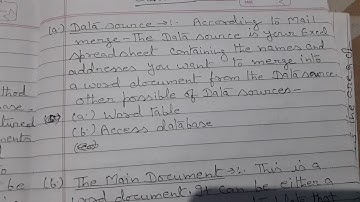 (a) Data source →:- According to Mail
merge - The Data source is your Excel
spreadsheet containing the names and
addresses you want to merge into
a word document from the Data source
other possible of Data sources -
(a) Word table
(b) Access database
(b) The Main Document →:- This is a
word document. It can be either a